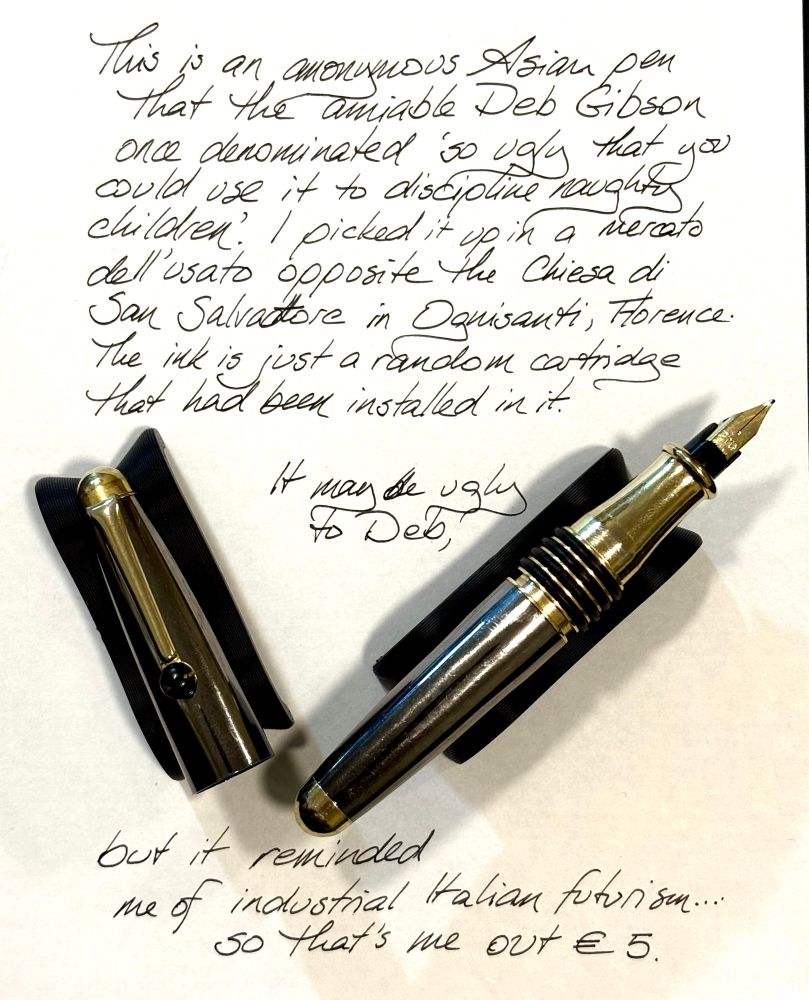 This is an anonymous Asian pen
that the amiable Deb Gibson
once denominated 'so ugly that you
could use it to discipline naughty
children'. I picked it up in a mercato
dell'usato opposite the Chiesa di
San Salvadore in Ognisanti, Florence.
The ink is just a random cartridge
that had been installed in it.
It may be ugly
to Deb,
but it reminded
me of industrial Italian futurism...
so that's me out € 5.